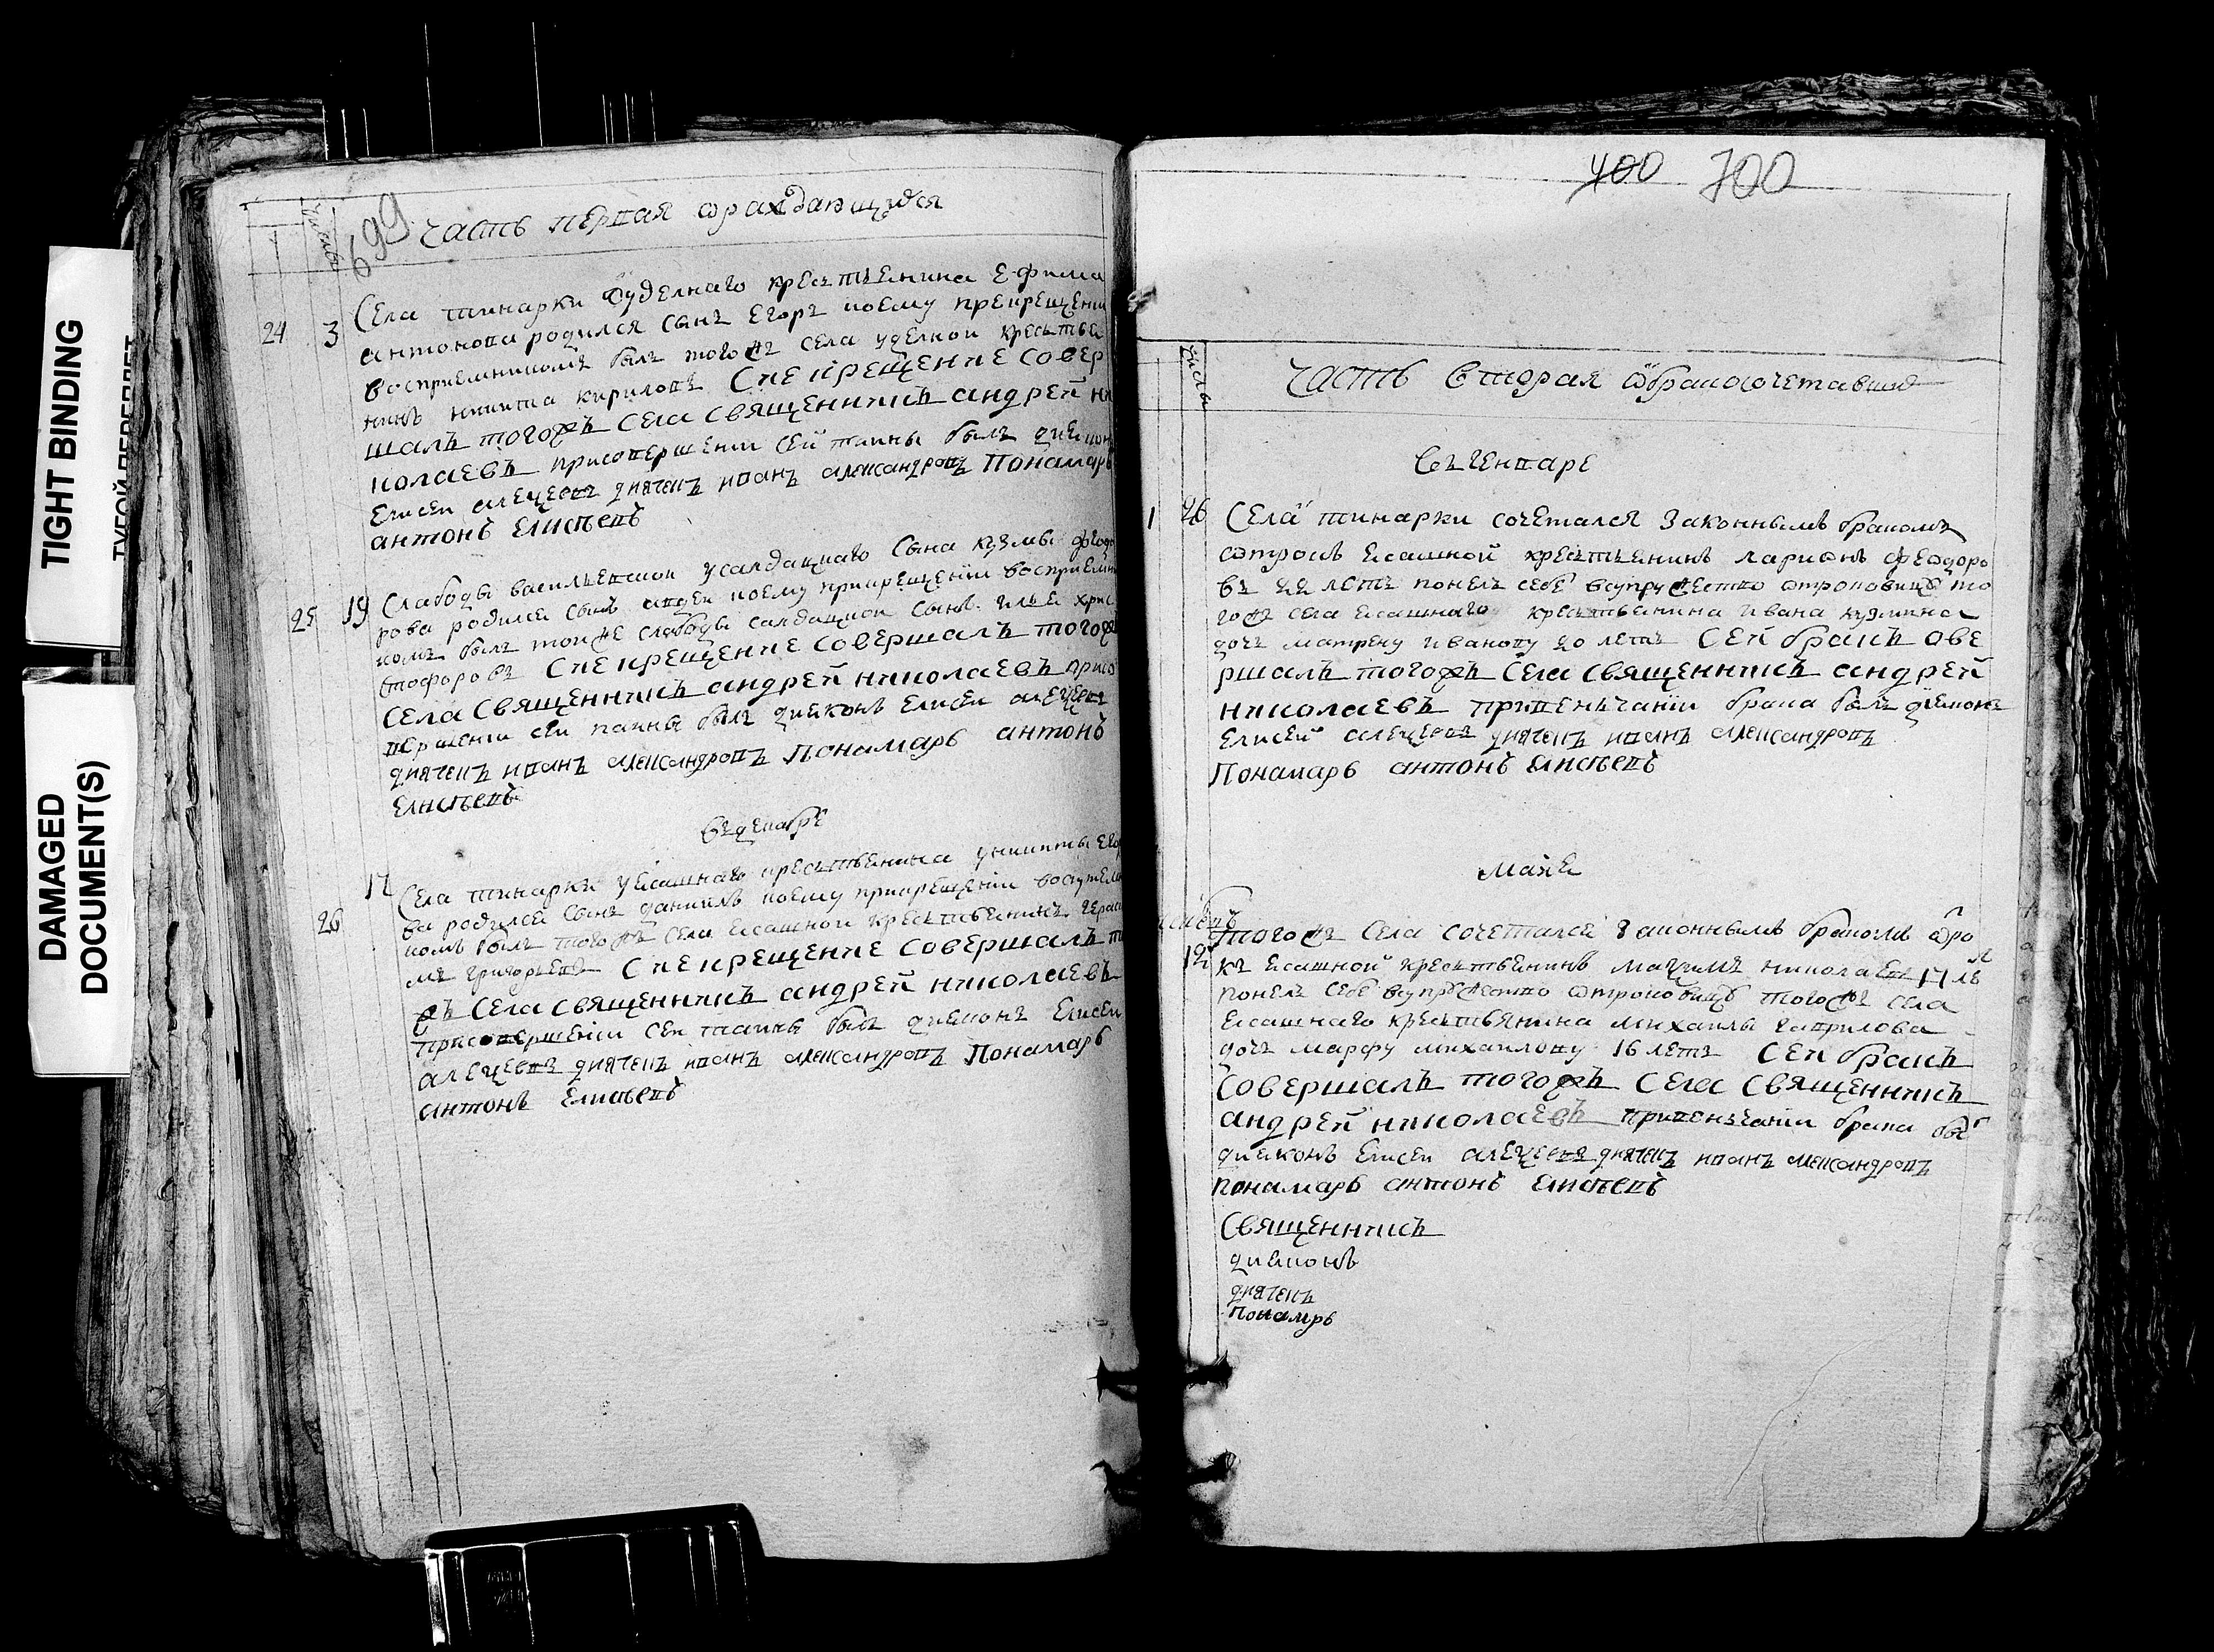 TIGHT BINDING
DAMAGED
DOCUMENT(S)
699
Часть первая о раждающихся
число
24 3 Села тинарки Удѣлнаго крестьенина Ефима
антонова родился сынъ Егоръ коему прикрещени
восприемникомъ былъ тогожъ села уделной крестьеи
нинъ никита кириловъ Сие крещение совер
шалъ тогожъ села священникъ андрей ни
колаевъ присовершении сей таины былъ диакон
Елисей алеѯеевъ дьячекъ иванъ александровъ Пономарь
антонъ Елисѣевъ
25 19 Слабоды васильевской усалдацкаго сына кузмы феодо
рова родился сынъ андрей коему прикрещении восприемни
комъ былъ тойже слабоды салдацкой сынъ илья хрис
тофоровъ Сие крещение совершалъ тогожъ
села священникъ андрей николаевъ присо
вершении сей таины былъ диаконъ Елисей алеѯеевъ
дьячекъ иванъ александровъ Понамарь антонъ
Елисѣевъ
въ декабрѣ
26 17 Села тинарки уясашнаго крестьвенина никиты Его
ва родился сынъ данилъ коему прикрещении
комъ былъ тогожъ села ясашной крестьвенинъ гераси
мъ григорьевъ Сие крещение совершалъ то
жъ села священникъ андрей николаевъ
присовершении сей таины былъ диаконъ Елисей
алеѯеевъ дьячекъ иванъ александровъ Понамарь
антонъ Елисѣевъ
400 700
число
Часть вторая о бракосочетавших
въ генваре
1 26 Села тинарки сочетался законнымъ бракомъ
отрокъ ясашной крестьвенинъ ларионъ феодоро
въ 22 летъ понелъ себе всупружество отроковицу то
гожъ села ясашнаго крестьвенина ивана кузмина
дочь матрену иванову 20 летъ Сей бракъ сове
ршалъ тогожъ села священникъ андрей
николаевъ привенчании брака былъ диаконъ
Елисей алеѯеевъ дьячекъ иванъ александровъ
Понамарь антонъ Елисѣевъ
маие
12 тогожъ села сочетался законнымъ бракомъ отро
къ ясашной крестьвенинъ маѯимъ николаевъ 17 ле
понелъ себе всупружество отроковицу тогожъ села
ясашнаго крестьвянина михаилы гаврилова
дочь марфу михаилову 16 летъ Сей бракъ
совершалъ тогожъ села священникъ
андрей николаевъ привенчании брака былъ
диаконъ Елисей алеѯеевъ дьячекъ иванъ александровъ
понамарь антонъ Елисѣевъ
Священникъ
диаконъ
дьячекъ
понамрь